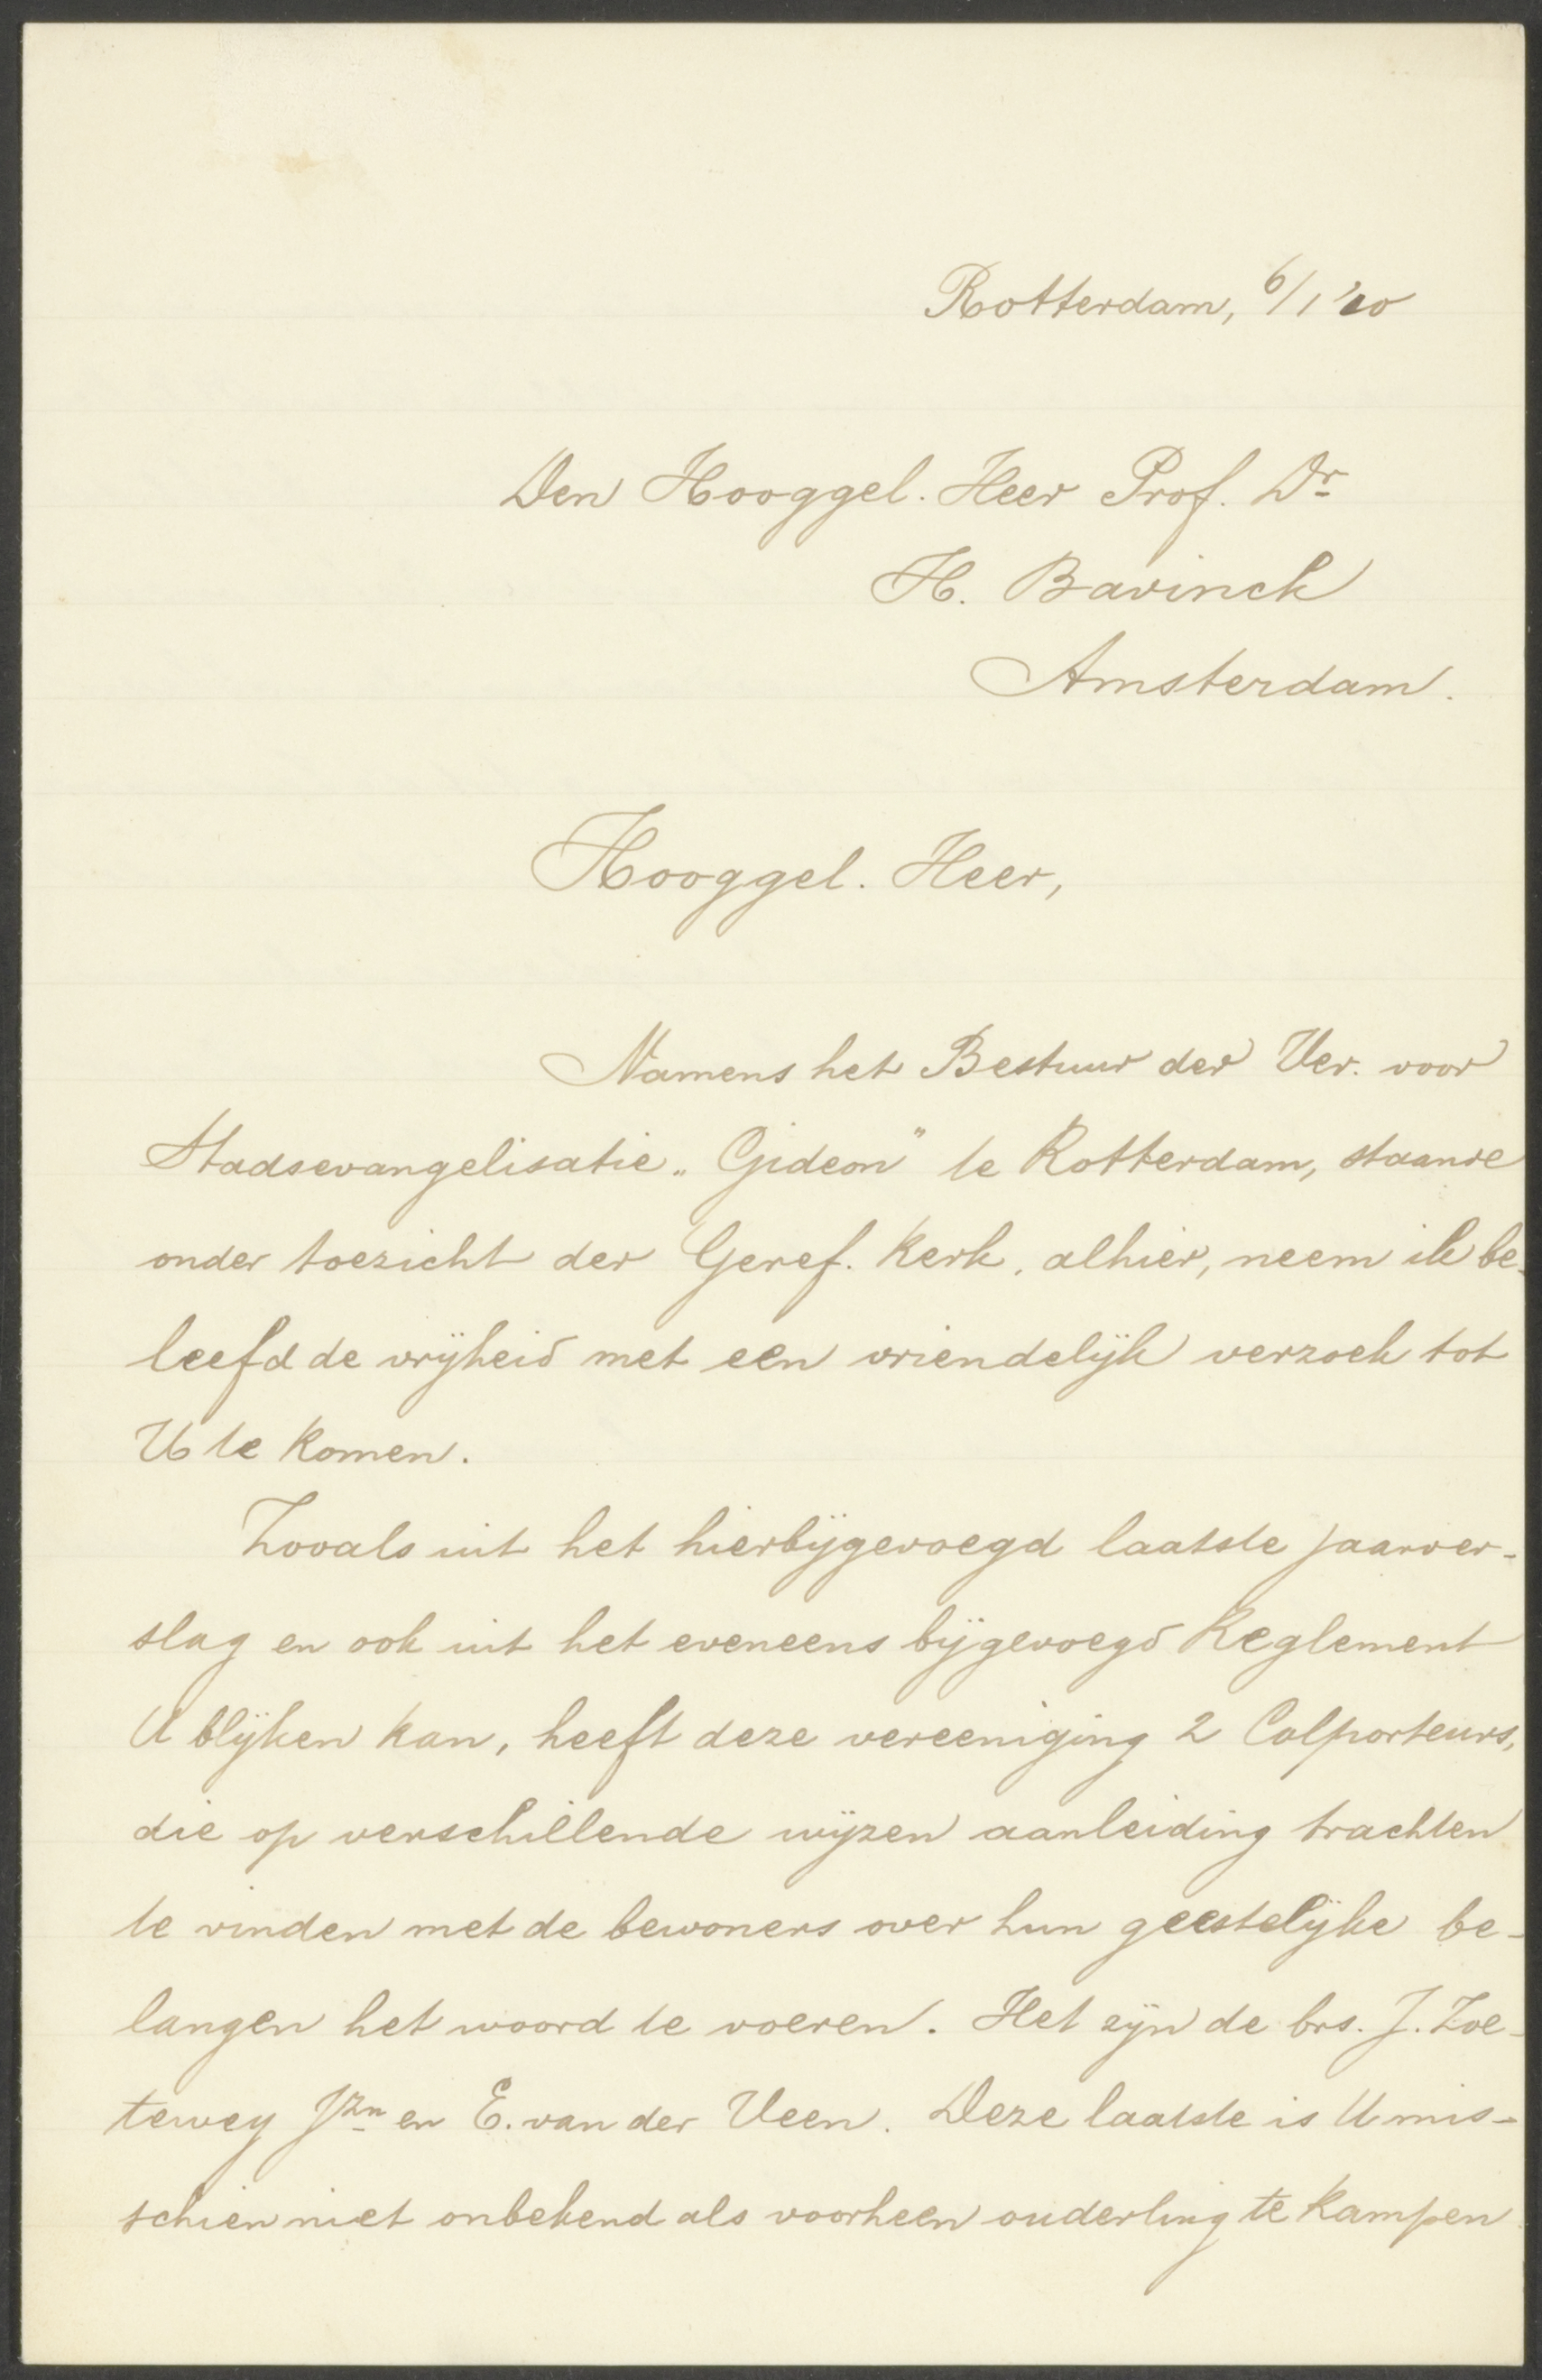 Rotterdam, 6/1 '10
Den Hooggel. Heer Prof. Dr
H. Bavinck
Amsterdam.
Hooggel. Heer,
Namens het Bestuur der Ver. voor
Stadsevangelisatie „Gideon" te Rotterdam, staande
onder toezicht der Geref. Kerk, alhier, neem ik be-
leefd de vrijheid met een vriendelijk verzoek tot
U te komen.
Zooals uit het hierbijgevoegd laatste jaarver-
slag en ook uit het eveneens bijgevoegd Reglement
U blijken kan, heeft deze vereeniging 2 Colporteurs,
die op verschillende wijzen aanleiding trachten
te vinden met de bewoners over hun geestelijke be-
langen het woord te voeren. Het zijn de brs. J. Zoe-
tewey Jzn en E. van der Veen. Deze laatste is U mis-
schien niet onbekend als voorheen ouderling te Kampen